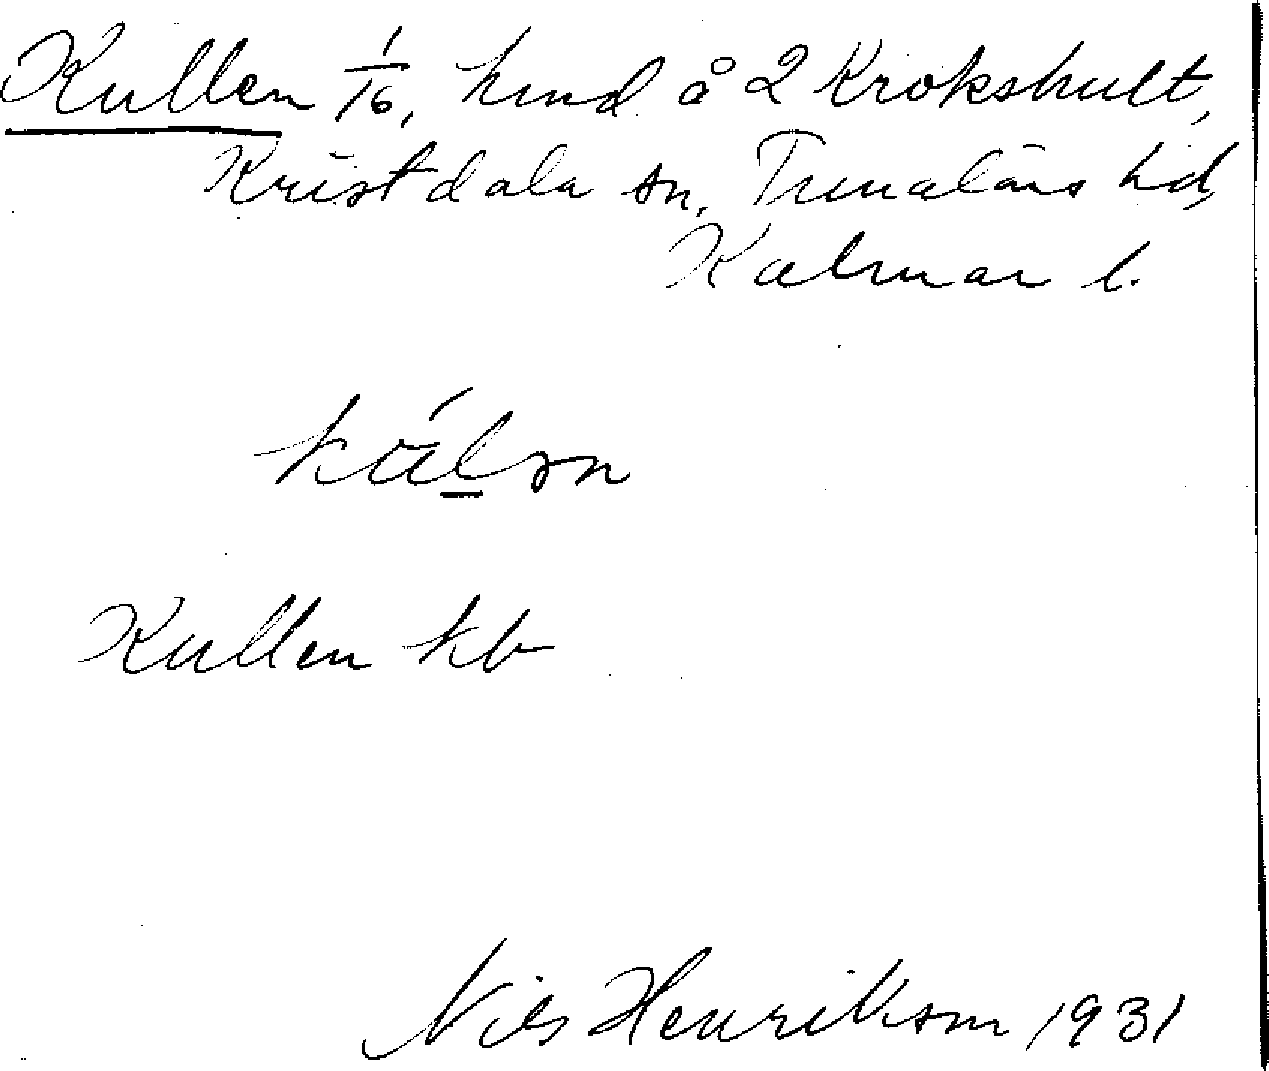 Kullen 1/16, hmd å 2 Krokshult,
Kristdala sn, Tunaläns hd,
Kalmar l.
kúlən
Kullen kb
Nils Henrikson 1931